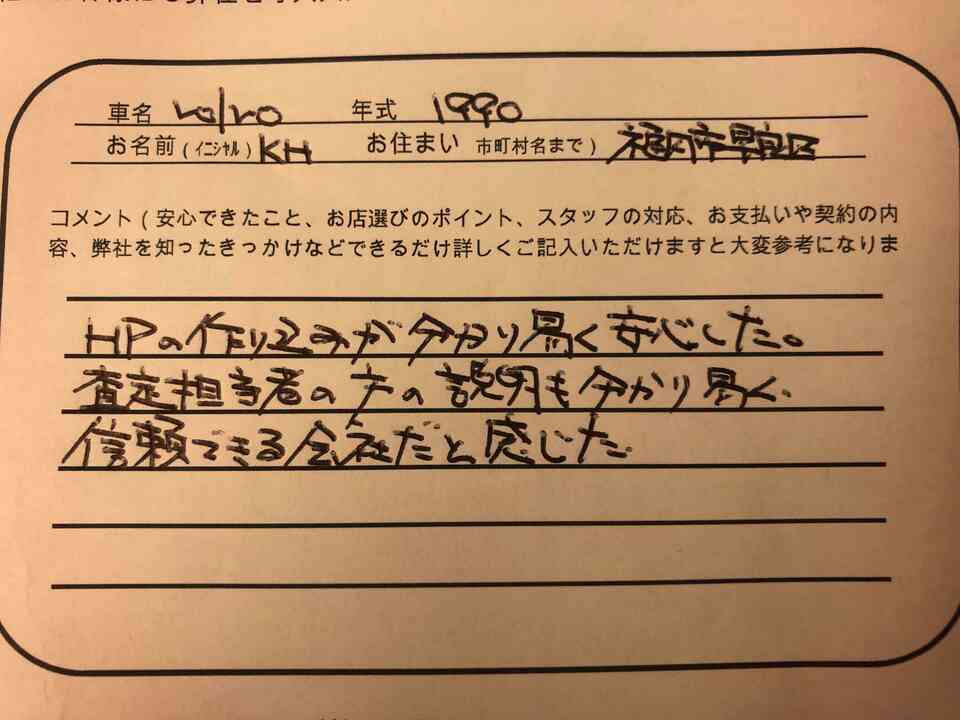 車名 volvo 年式 1990
お名前(イニシャル) KH お住まい 市町村名まで) 福岡市早良区
コメント(安心できたこと、お店選びのポイント、スタッフの対応、お支払いや契約の内
容、弊社を知ったきっかけなどできるだけ詳しくご記入いただけますと大変参考になりま
HPの作り込みが分かり易く安心した。
査定担当者の方の説明も分かり易く、
信頼できる会社だと感じた